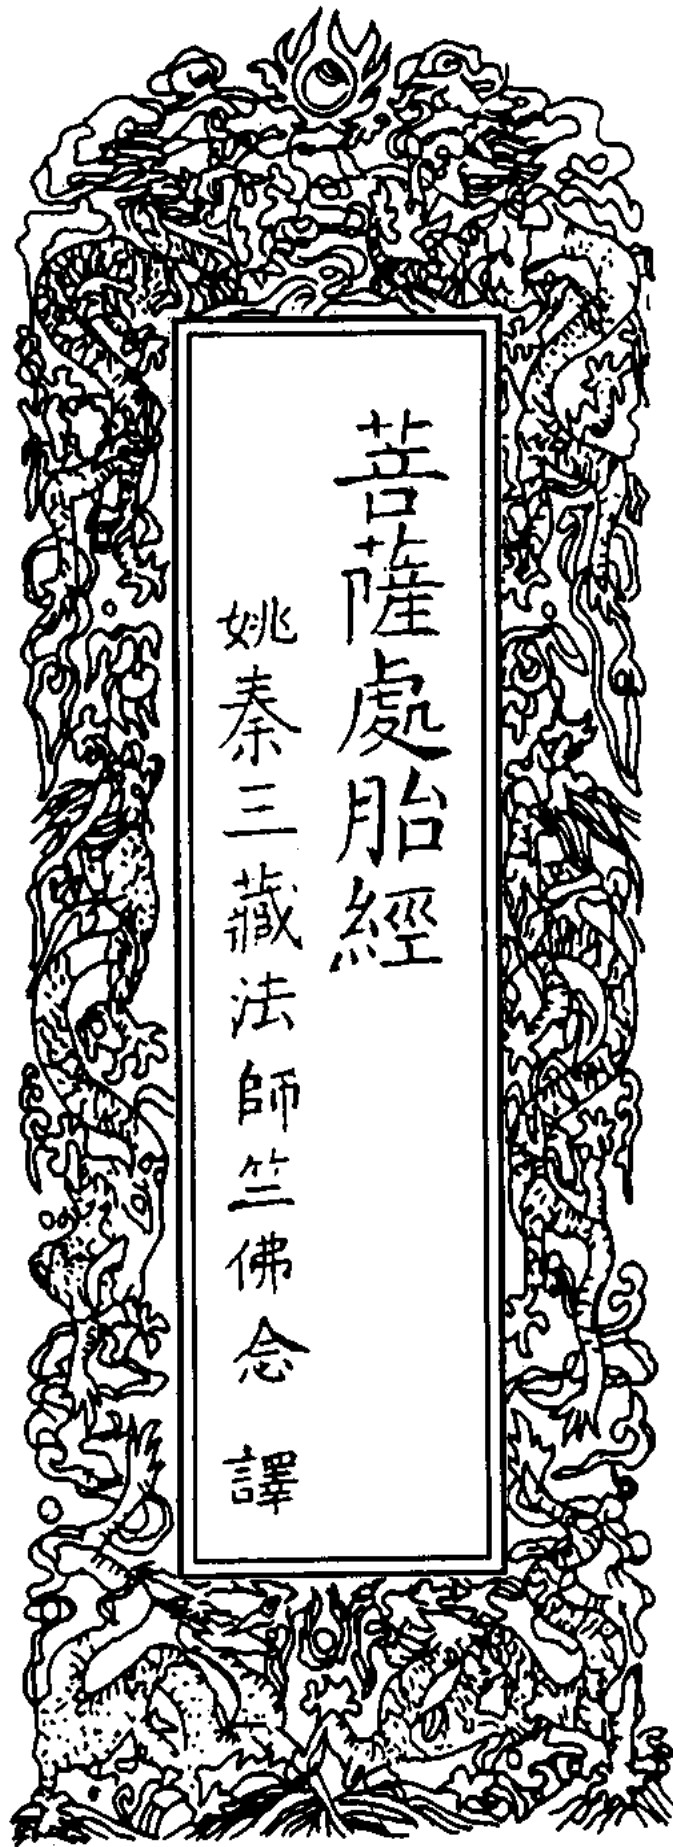 菩薩處胎經
姚秦三藏法師竺佛念 譯